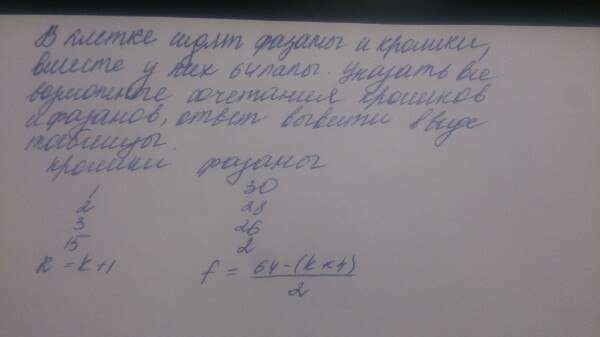 В клетке сидят фазаны и кролики,
вместе у них 64 лапы. Указать все
возможные сочетания кроликов
и фазанов, ответ вывести в виде
таблицы.
кролики фазаны
1 30
2 28
3 26
15 2
k = k+1 f = 64-(k*4)
2